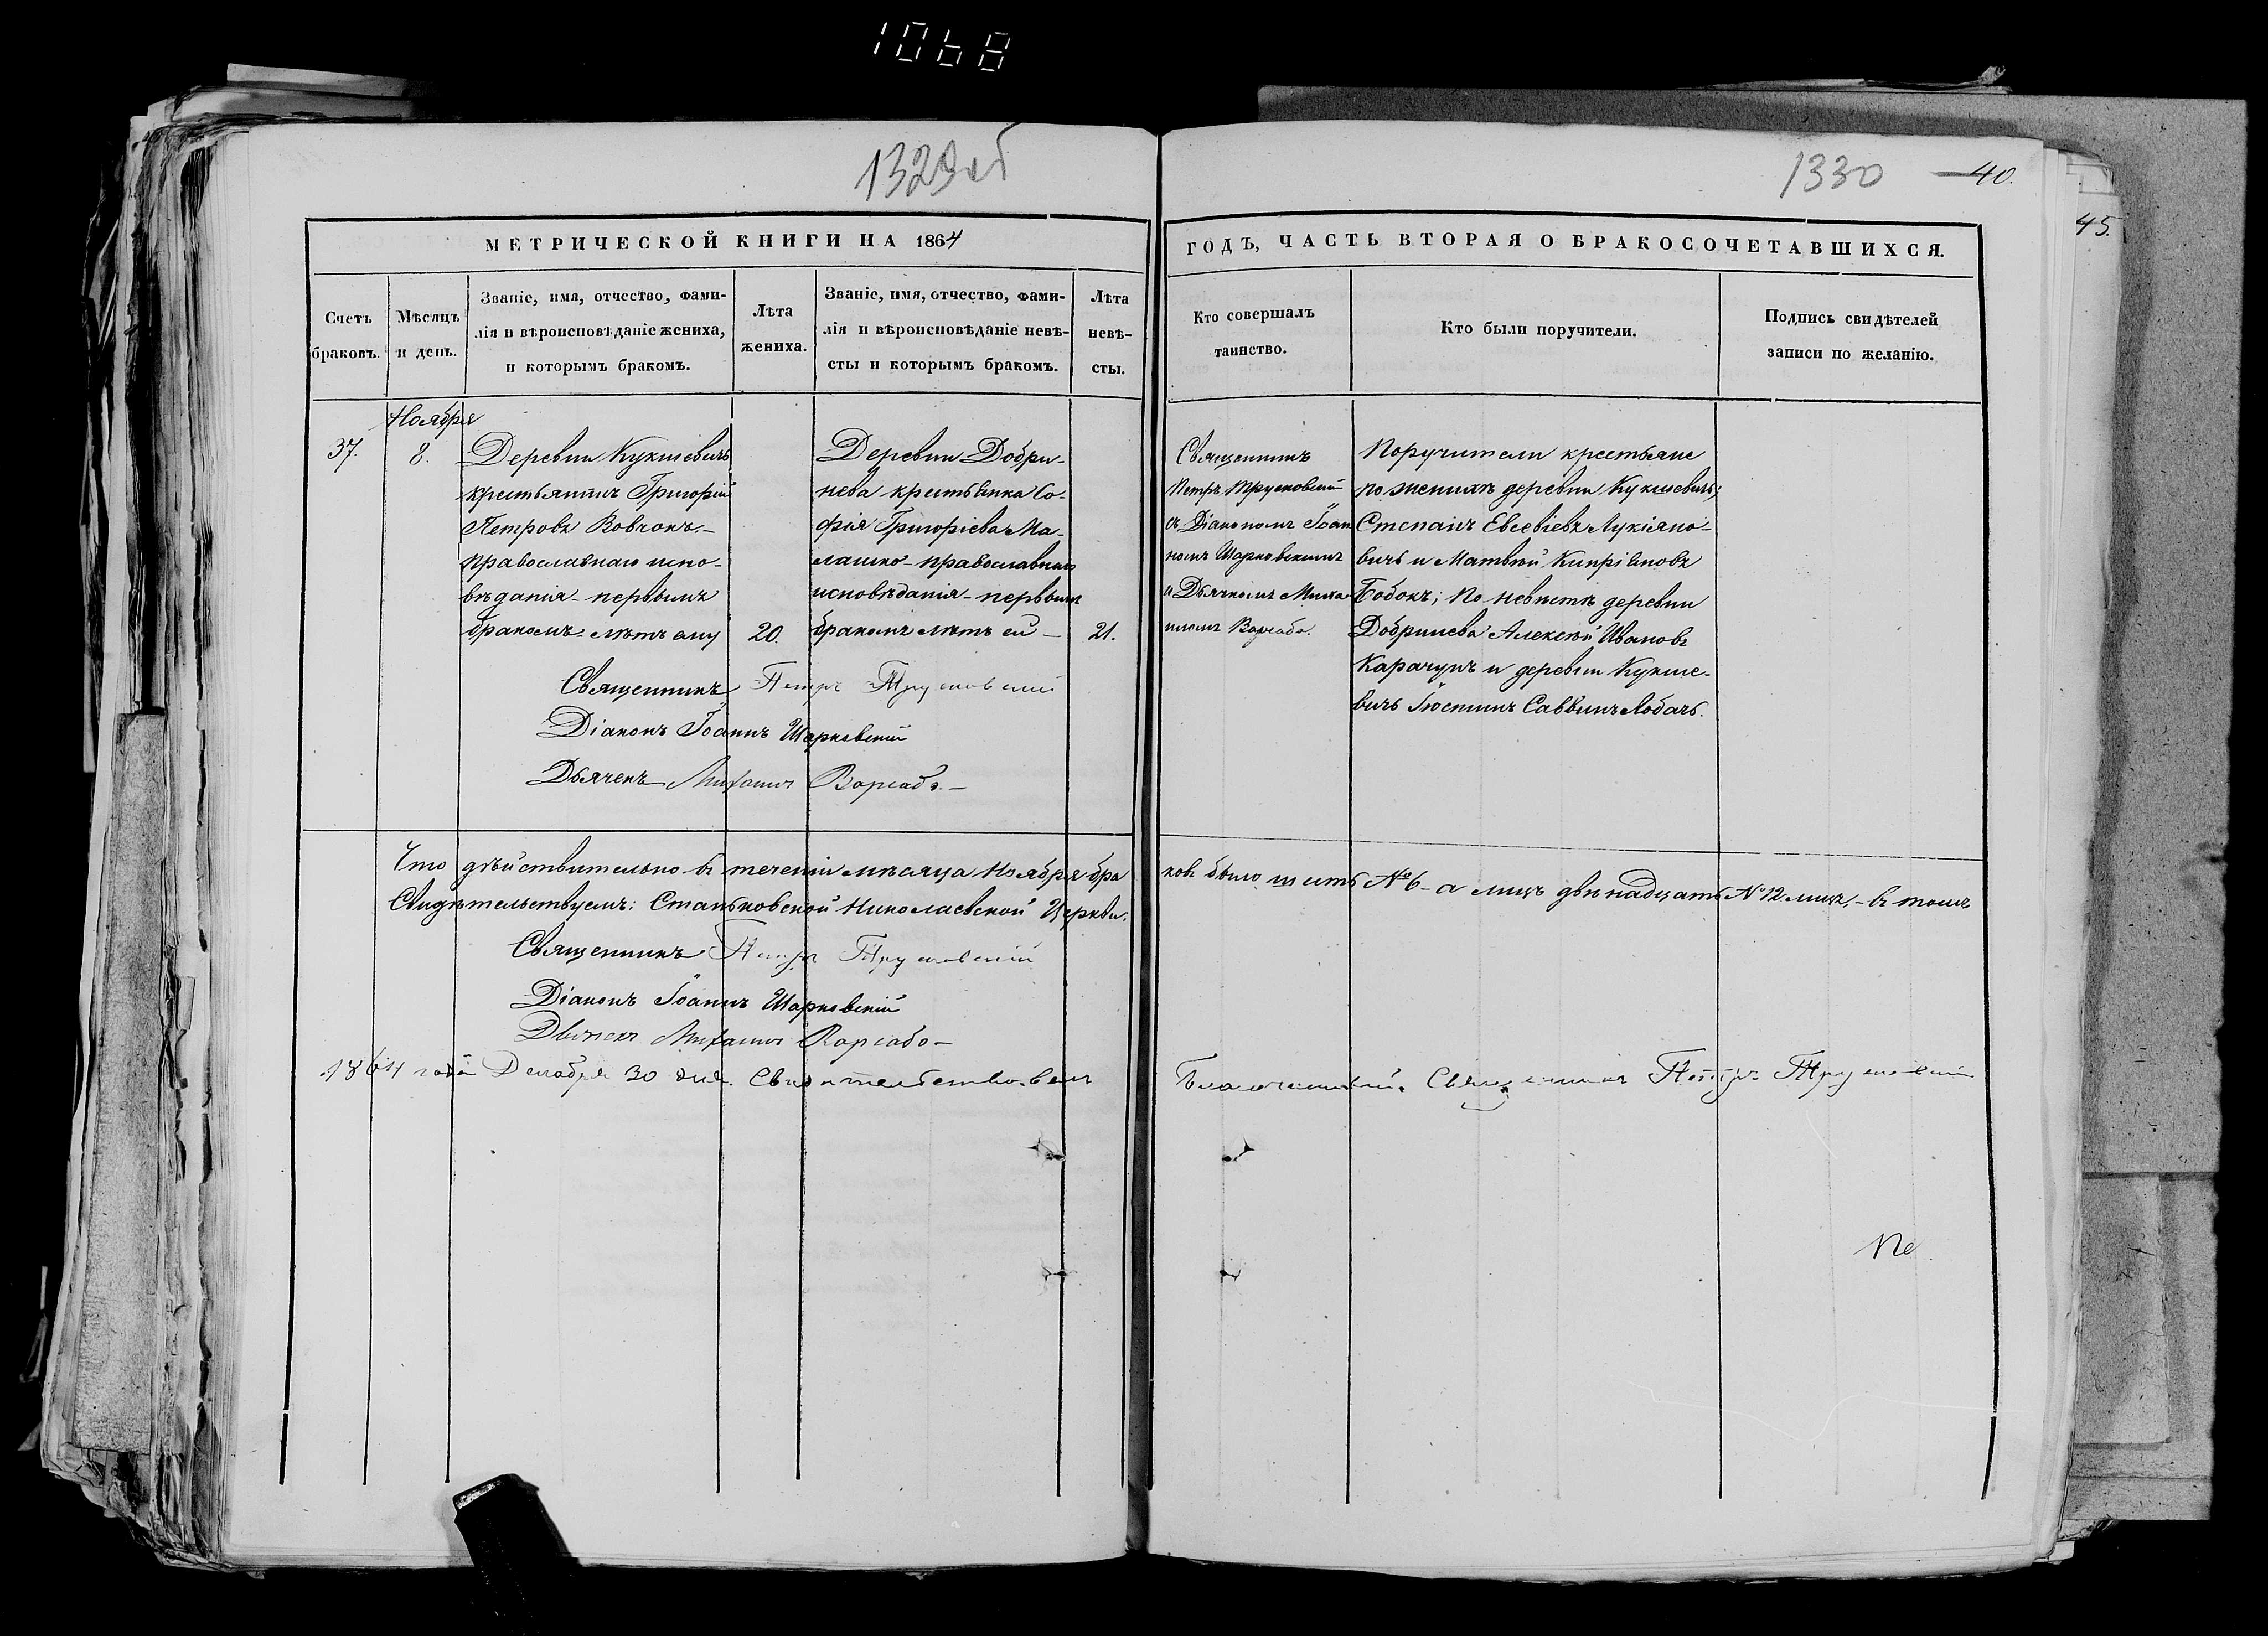 1068
1329об
1330 40.
45.
МЕТРИЧЕСКОЙ КНИГИ НА 1864
ГОДЪ, ЧАСТЬ ВТОРАЯ О БРАКОСОЧЕТАВШИХСЯ.
Счетъ
браковъ.
Мѣсяцъ
и день.
Званіе, имя, отчество, фами-
лія и вѣроисповѣданіе жениха,
и которымъ бракомъ.
Лѣта
жениха.
Званіе, имя, отчество, фами-
лія и вѣроисповѣданіе невѣ-
сты и которымъ бракомъ.
Лѣта
невѣ-
сты.
Кто совершалъ
таинство.
Кто были поручители.
Подпись свидѣтелей
записи по желанію.
37.
Ноября
8.
Деревни Кукшевичъ
крестьянинъ Григорій
Петровъ Вовчокъ.-
православнаго испо-
вѣданія - первымъ
бракомъ - лѣтъ ему
20.
Деревни Добри-
нева крестьянка Со-
фія Григоріева Ма-
лашко - православнаго
исповѣданія - первымъ
бракомъ лѣтъ ей -
21.
Священникъ
Петръ Трусковскій
съ Діакономъ Іоан
номъ Шарковскимъ
и Дьячкомъ Миха
иломъ Варсабо.
Поручители крестьяне
по женихѣ деревни Кукшевичъ:
Степанъ Евсевіевъ Лукіяно-
вичъ и Матвѣй Кипріяновъ
Бобокъ; По невѣстѣ деревни
Добринева Алексѣй Ивановъ
Карачунъ и деревни Кукше-
вичъ Іюстинъ Саввинъ Лобачъ.
Священникъ Петръ Трусковскій
Діаконъ Іоаннъ Шарковскій
Дьячекъ Михаилъ Варсабо.-
Что дѣйствительно въ теченіи мѣсяца Ноября бра
ковъ было шесть № 6 - а лицъ двѣнадцать № 12 лицъ, - въ томъ
Свидѣтельствуемъ: Станьковской Николаевской Церкви.
Священникъ Петръ Трусковскій
Діаконъ Іоаннъ Шарковскій
Дьячекъ Михаилъ Варсабо -
1864 года Декабря 30 дня. Свидѣтельствовалъ
Благочинный. Священникъ Петръ Трусковскій